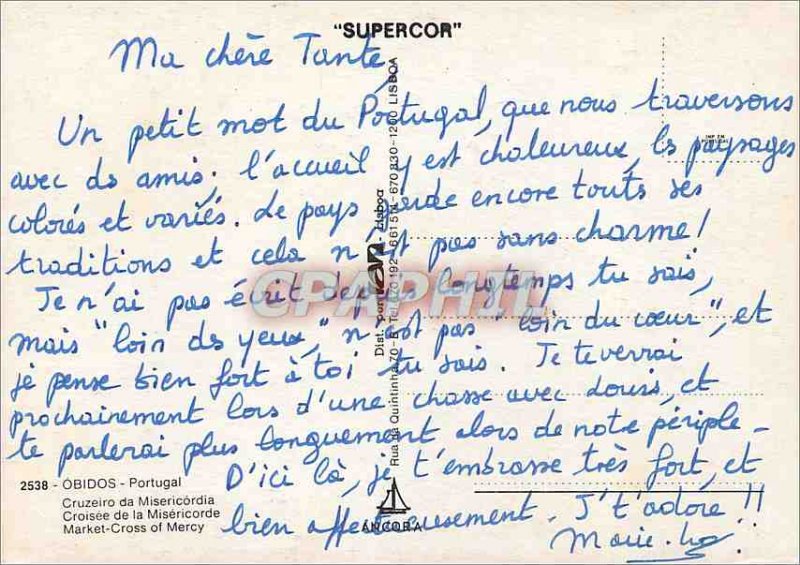 "SUPERCOR"
Ma chère Tante,
Un petit mot du Portugal, que nous traversons
avec des amis; l'accueil y est chaleureux, les paysages
colorés et variés. Le pays garde encore toutes ses
traditions et cela n'est pas sans charme!
Je n'ai pas écrit depuis longtemps tu sais,
mais "loin des yeux," n'est pas "loin du cœur", et
je pense bien fort à toi tu sais. Je te verrai
prochainement lors d'une chasse avec Louis, et
te parlerai plus longuement alors de notre périple -
D'ici là, je t'embrasse très fort, et
bien affectueusement. J't'adore!!
Marie-
2538 - ÓBIDOS - Portugal
Cruzeiro da Misericórdia
Croisée de la Miséricorde
Market-Cross of Mercy
ÂNCORA
Rua da Quintinha 70-B Tel. 670 192-661514-670830-1200 LISBOA
Dist. por Lisboa
IMP. EM PORTUGAL
CPAPHIL